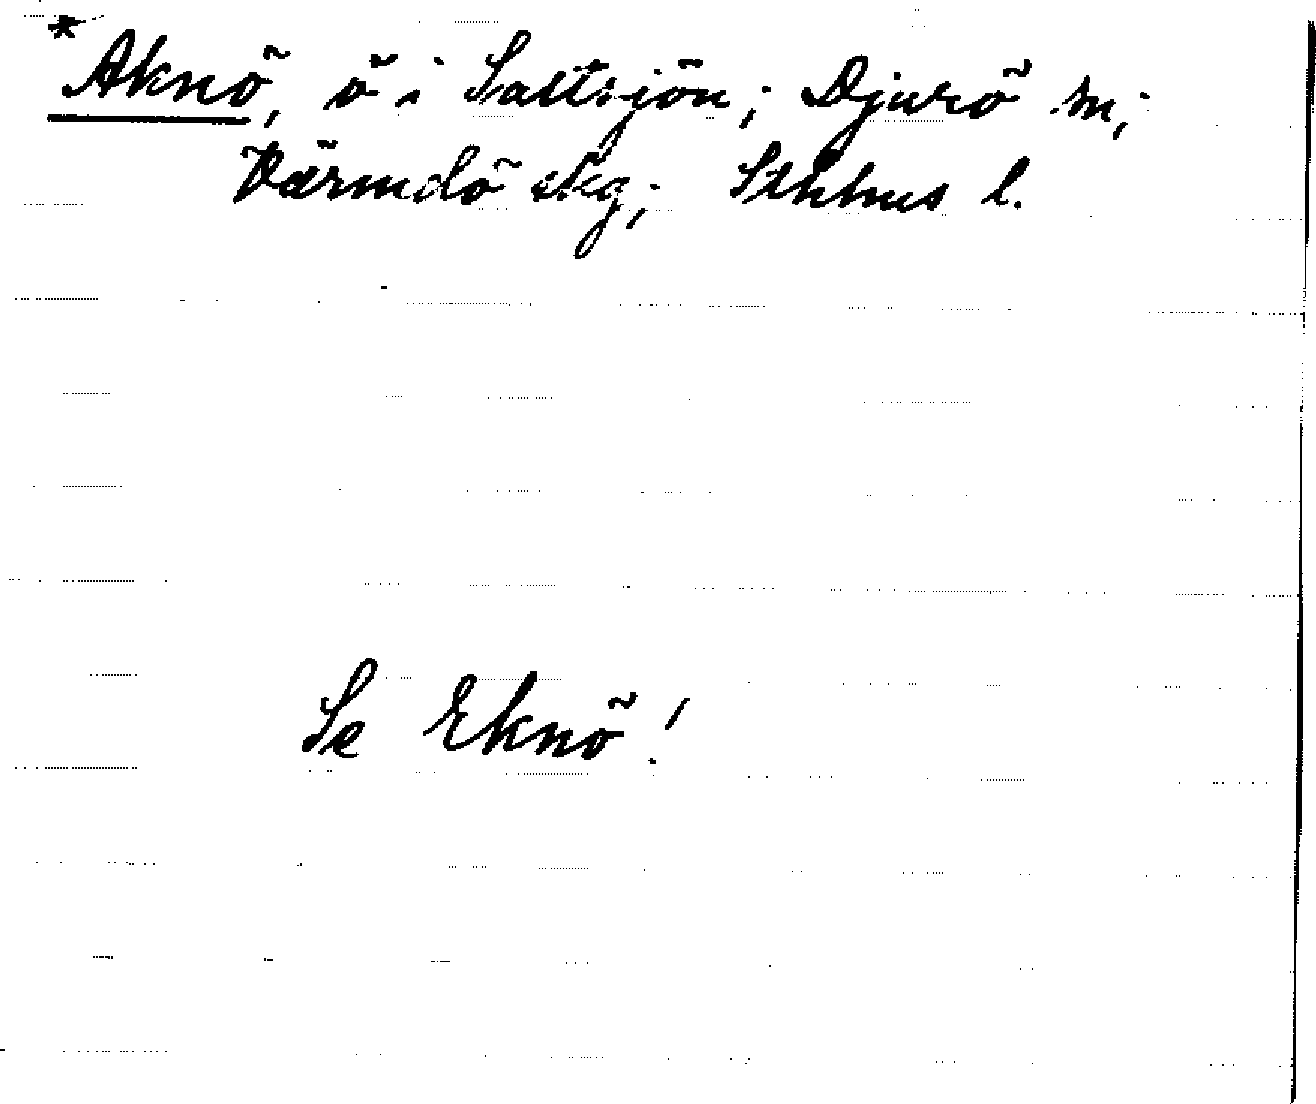 *Aknö, ö i Saltsjön; Djurö sn;
Värmdö skg; Sthlms l.
Se Eknö!